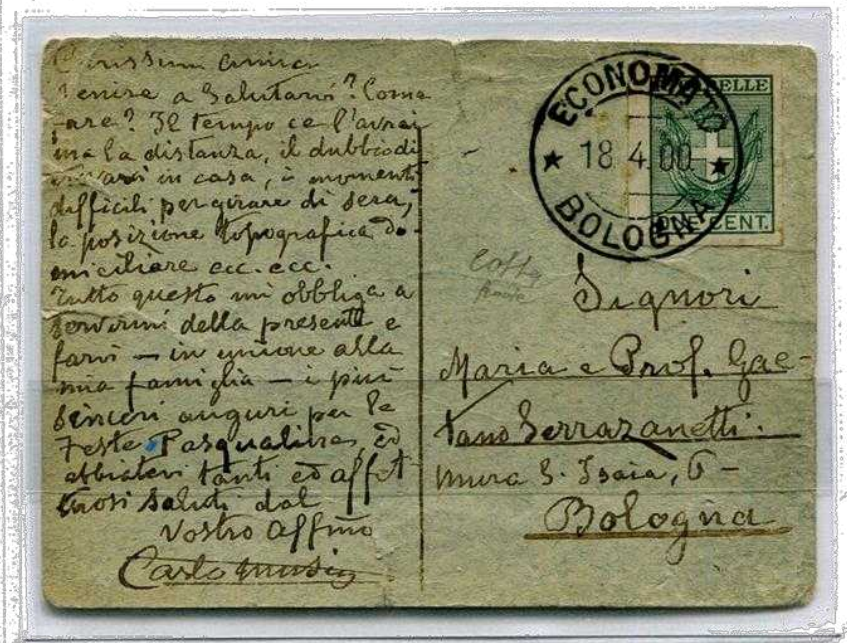 Carissimi amici
Venire a Salutarvi? Come
fare? Il tempo ce l'avrei
ma la distanza, il dubbio di
in casa, i momenti
difficili per girare di sera,
la posizione topografica do-
miciliare ecc. ecc.
Tutto questo mi obbliga a
servirmi della presente e
farvi — in unione alla
mia famiglia — i più
sinceri auguri per le
Feste Pasqualine, ed
abbiatevi tanti ed affet
tuosi saluti dal
Vostro Affmo
Carlo
ECONOMATO
18 4.00
BOLOGNA
CENT.
Signori
Maria e Prof. Gae-
tano Serrazanetti.
Mura S. Isaia, 6-
Bologna